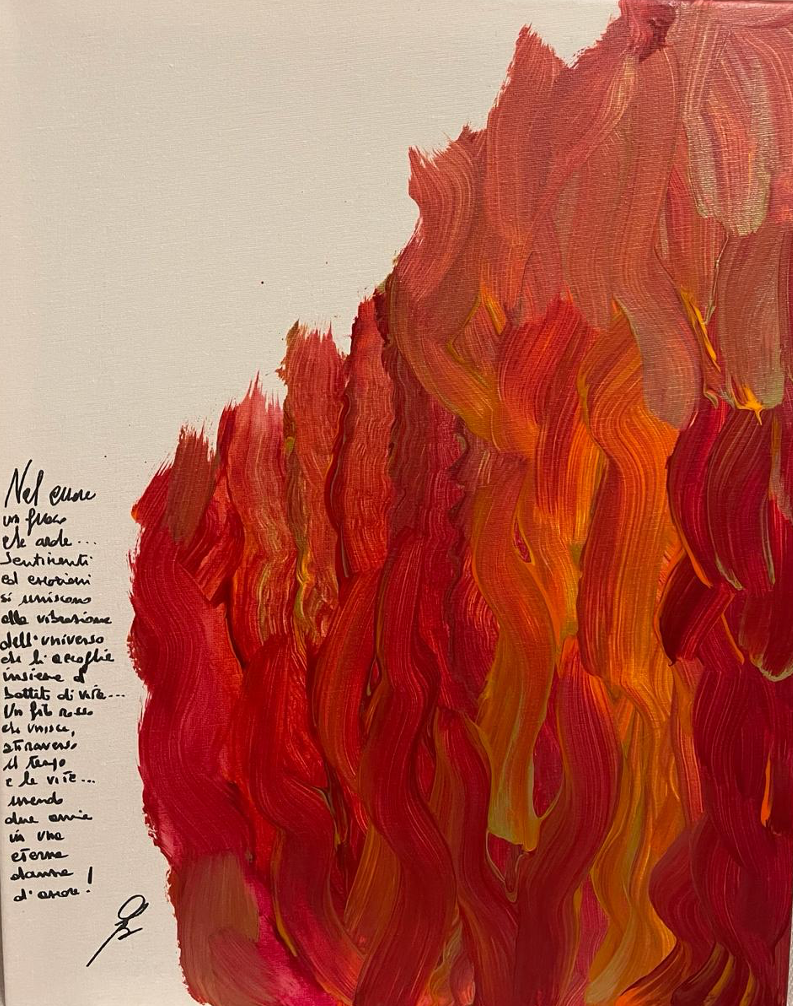 Nel cuore
un fuoco
che arde...
Sentimenti
ed emozioni
si uniscono
alla vibrazione
dell'universo
che li accoglie
insieme a
battiti di vita...
Un filo rosso
che unisce,
attraverso
il tempo
e le vite...
unendo
due anime
in una
eterna
danza
d'amore!